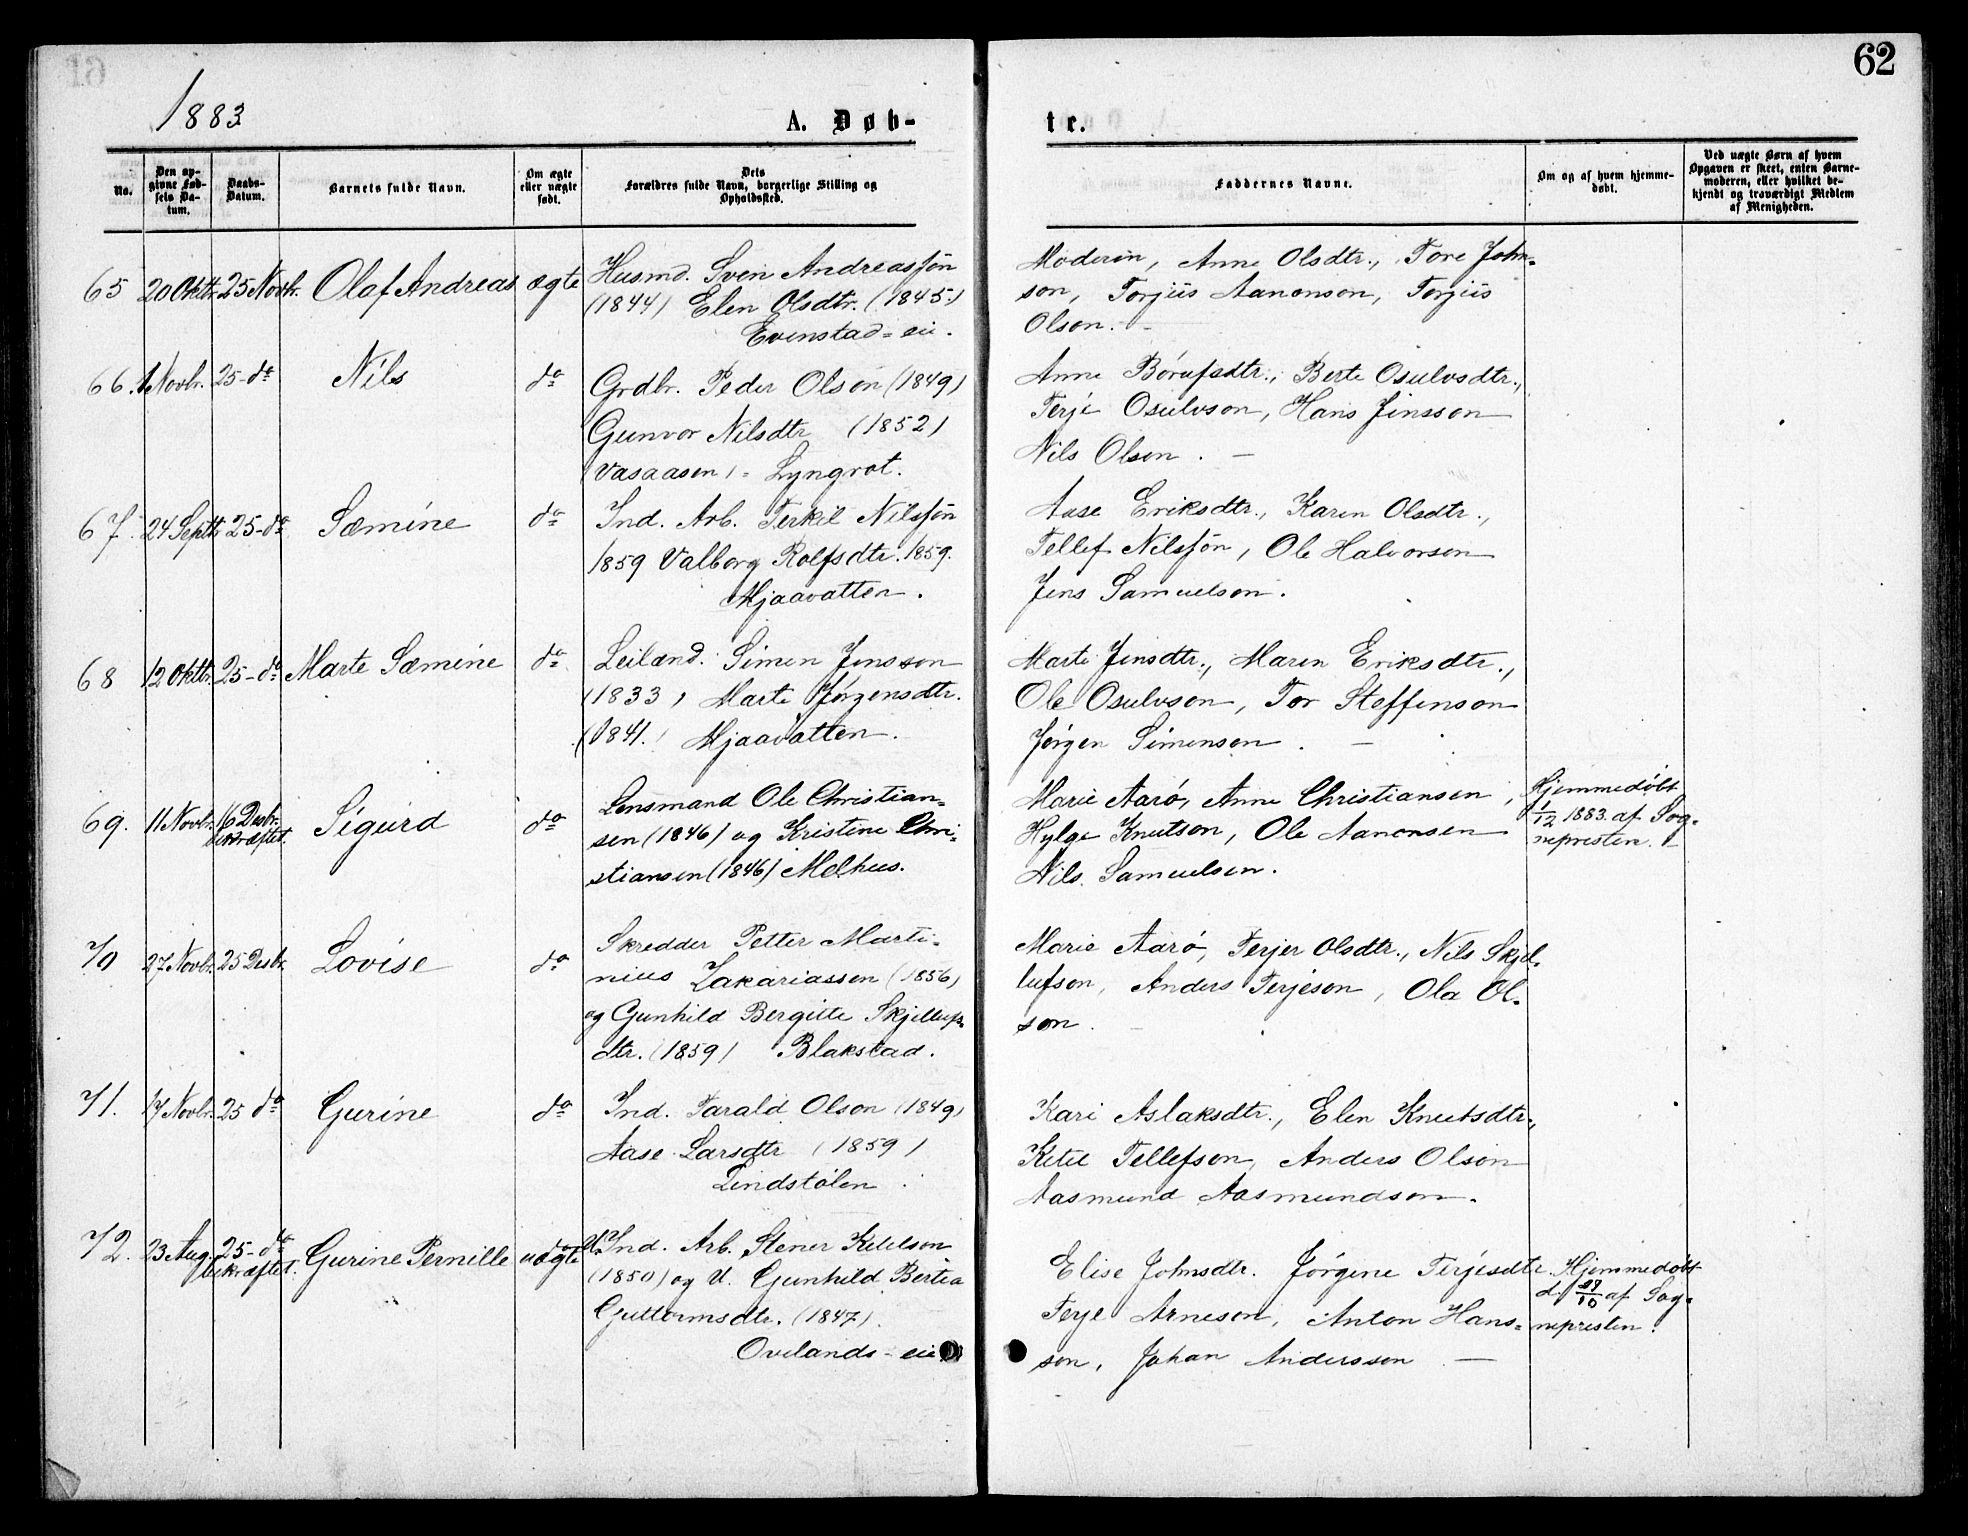 62
1883
A. Døb-
te.
No.
Den op-
givne Fød-
sels Da-
tum.
Daabs-
Datum.
Barnets fulde Navn.
Om ægte
eller uægte
født.
Dets
Forældres fulde Navn, borgerlige Stilling og
Opholdssted.
Faddernes Navne.
Om og af hvem hjemme-
døbt.
Ved uægte Børn af hvem
Opgaven er skeet, enten Barne-
moderen, eller hvilket be-
kjendt og troværdigt Medlem
af Menigheden.
65 20 Oktbr. 25 Novbr. Olaf Andreas ægte
Husmd. Sven Andreassøn
(1844) Elen Olsdtr. (1845)
Evenstad-eie.
Moderen, Anne Olsdtr., Tore John-
son, Torjus Aanonson, Torjus
Olson. -
66. 1 Novbr. 25-do Nils do
Grdbr. Peder Olson (1849)
Gunvor Nilsdtr (1852)
(Vasaasen) - Lyngrot.
Anne Børufsdtr., Berte Osulvsdtr.,
Terje Osulvson, Hans Jensson
Nils Olson. -
67. 24 Septbr 25-do Sæmine do
Ind. Arb. Terkil Nilssøn
1859 Valborg Rolfsdtr. 1859.
Mjaavatten.
Aase Eriksdtr., Karen Olsdtr.,
Tellef Nilssøn, Ole Halvorsen
Jens Samuelson.
68 12 Oktbr. 25-do Marte Sæmine do
Leilænd. Simon Jensson
(1833) Marte Jørgensdtr.
(1841.) Mjaavatten.
Marte Jensdtr., Maren Eriksdtr.,
Ole Osulvson, Tor Steffenson
Jørgen Simonson. -
69. 11 Novbr. 16 Desbr. Sigurd do
bekræftet.
Lensmand Ole Christian-
sen (1846) og Kristine Chri-
stiansen (1846) Melhus.
Marie Aarø, Anne Christiansen,
Hylge Knutson, Ole Aanonsen
Nils Samuelsen.
Hjemmedøbt
1/12 1883. af Sog-
nepresten. -
70 27 Novbr. 25 Desbr. Lovise do
Skredder Petter Marti-
nius Zakariassen (1856)
og Gunhild Bergitte Skjellufs-
dtr. (1859) Blakstad.
Marie Aarø, Terjer Olsdtr., Nils Skjel-
lufson, Anders Terjeson, Ola Ol-
son. -
71. 17 Novbr. 25 do Gurine do
Ind. Tarald Olson (1849)
Aase Larsdtr (1859)
Lindstølen.
Kari Aslaksdtr., Elen Knutsdtr.,
Ketil Tellefson, Anders Olson
Aasmund Aasmundson.
72. 23 Aug. 25-do Gurine Pernille uægte
bekræftet.
U. Ind. Arb. Stener Ketelson
(1850) og U. Gunhild Bertea
Guttormsdtr. (1847).
Ovelands-eie
Elise Johnsdtr. Jørgine Terjesdtr.
Terje Arneson, Anton Hans-
son, Johan Andersson -
Hjemmedøbt
d. 29/10 af Sog-
nepresten.